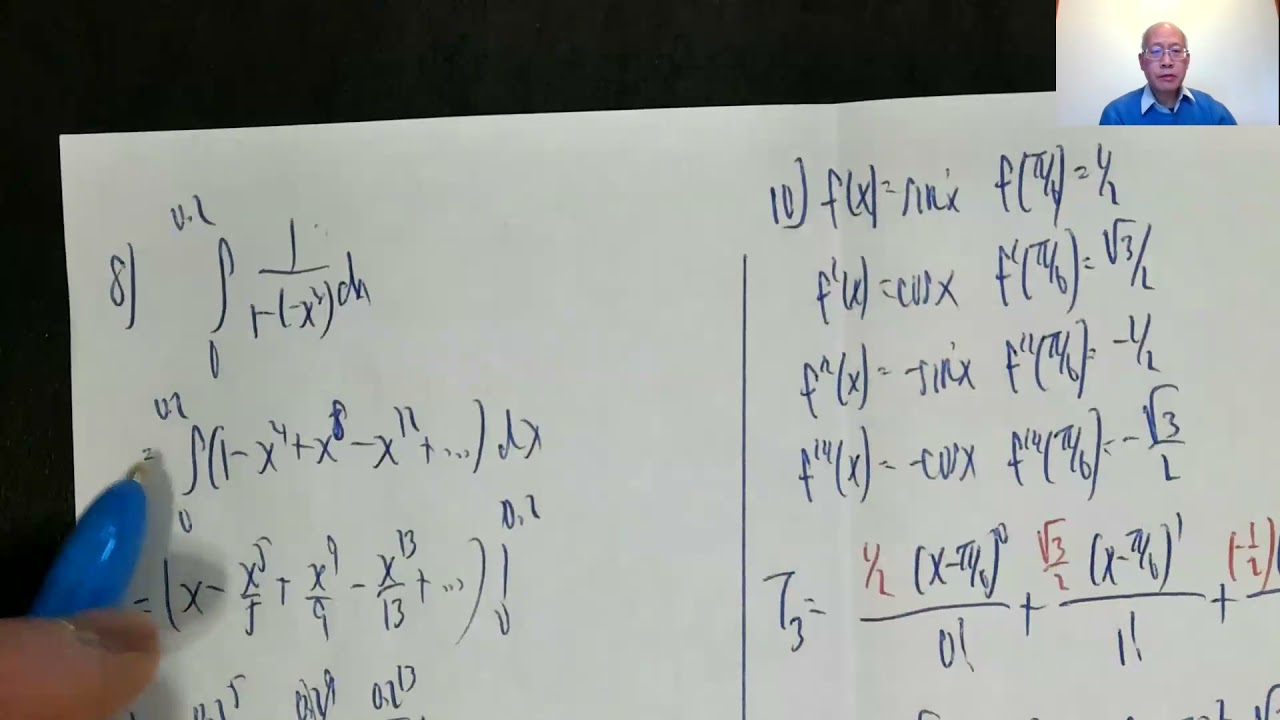 8) ∫₀^0.2 1/(1-(-x⁴)) dx
= ∫₀^0.2 (1-x⁴+x⁸-x¹²+...) dx
= (x - x⁵/5 + x⁹/9 - x¹³/13 + ...) |₀^0.2
0.2⁵ 0.2⁹ 0.2¹³
10) f(x)=sinx f(π/6)=1/2
f'(x)=cosx f'(π/6)=√3/2
f''(x)=-sinx f''(π/6)=-1/2
f'''(x)=-cosx f'''(π/6)=-√3/2
T₃= 1/2 (x-π/6)⁰/0! + √3/2 (x-π/6)¹/1! + (-1/2)(